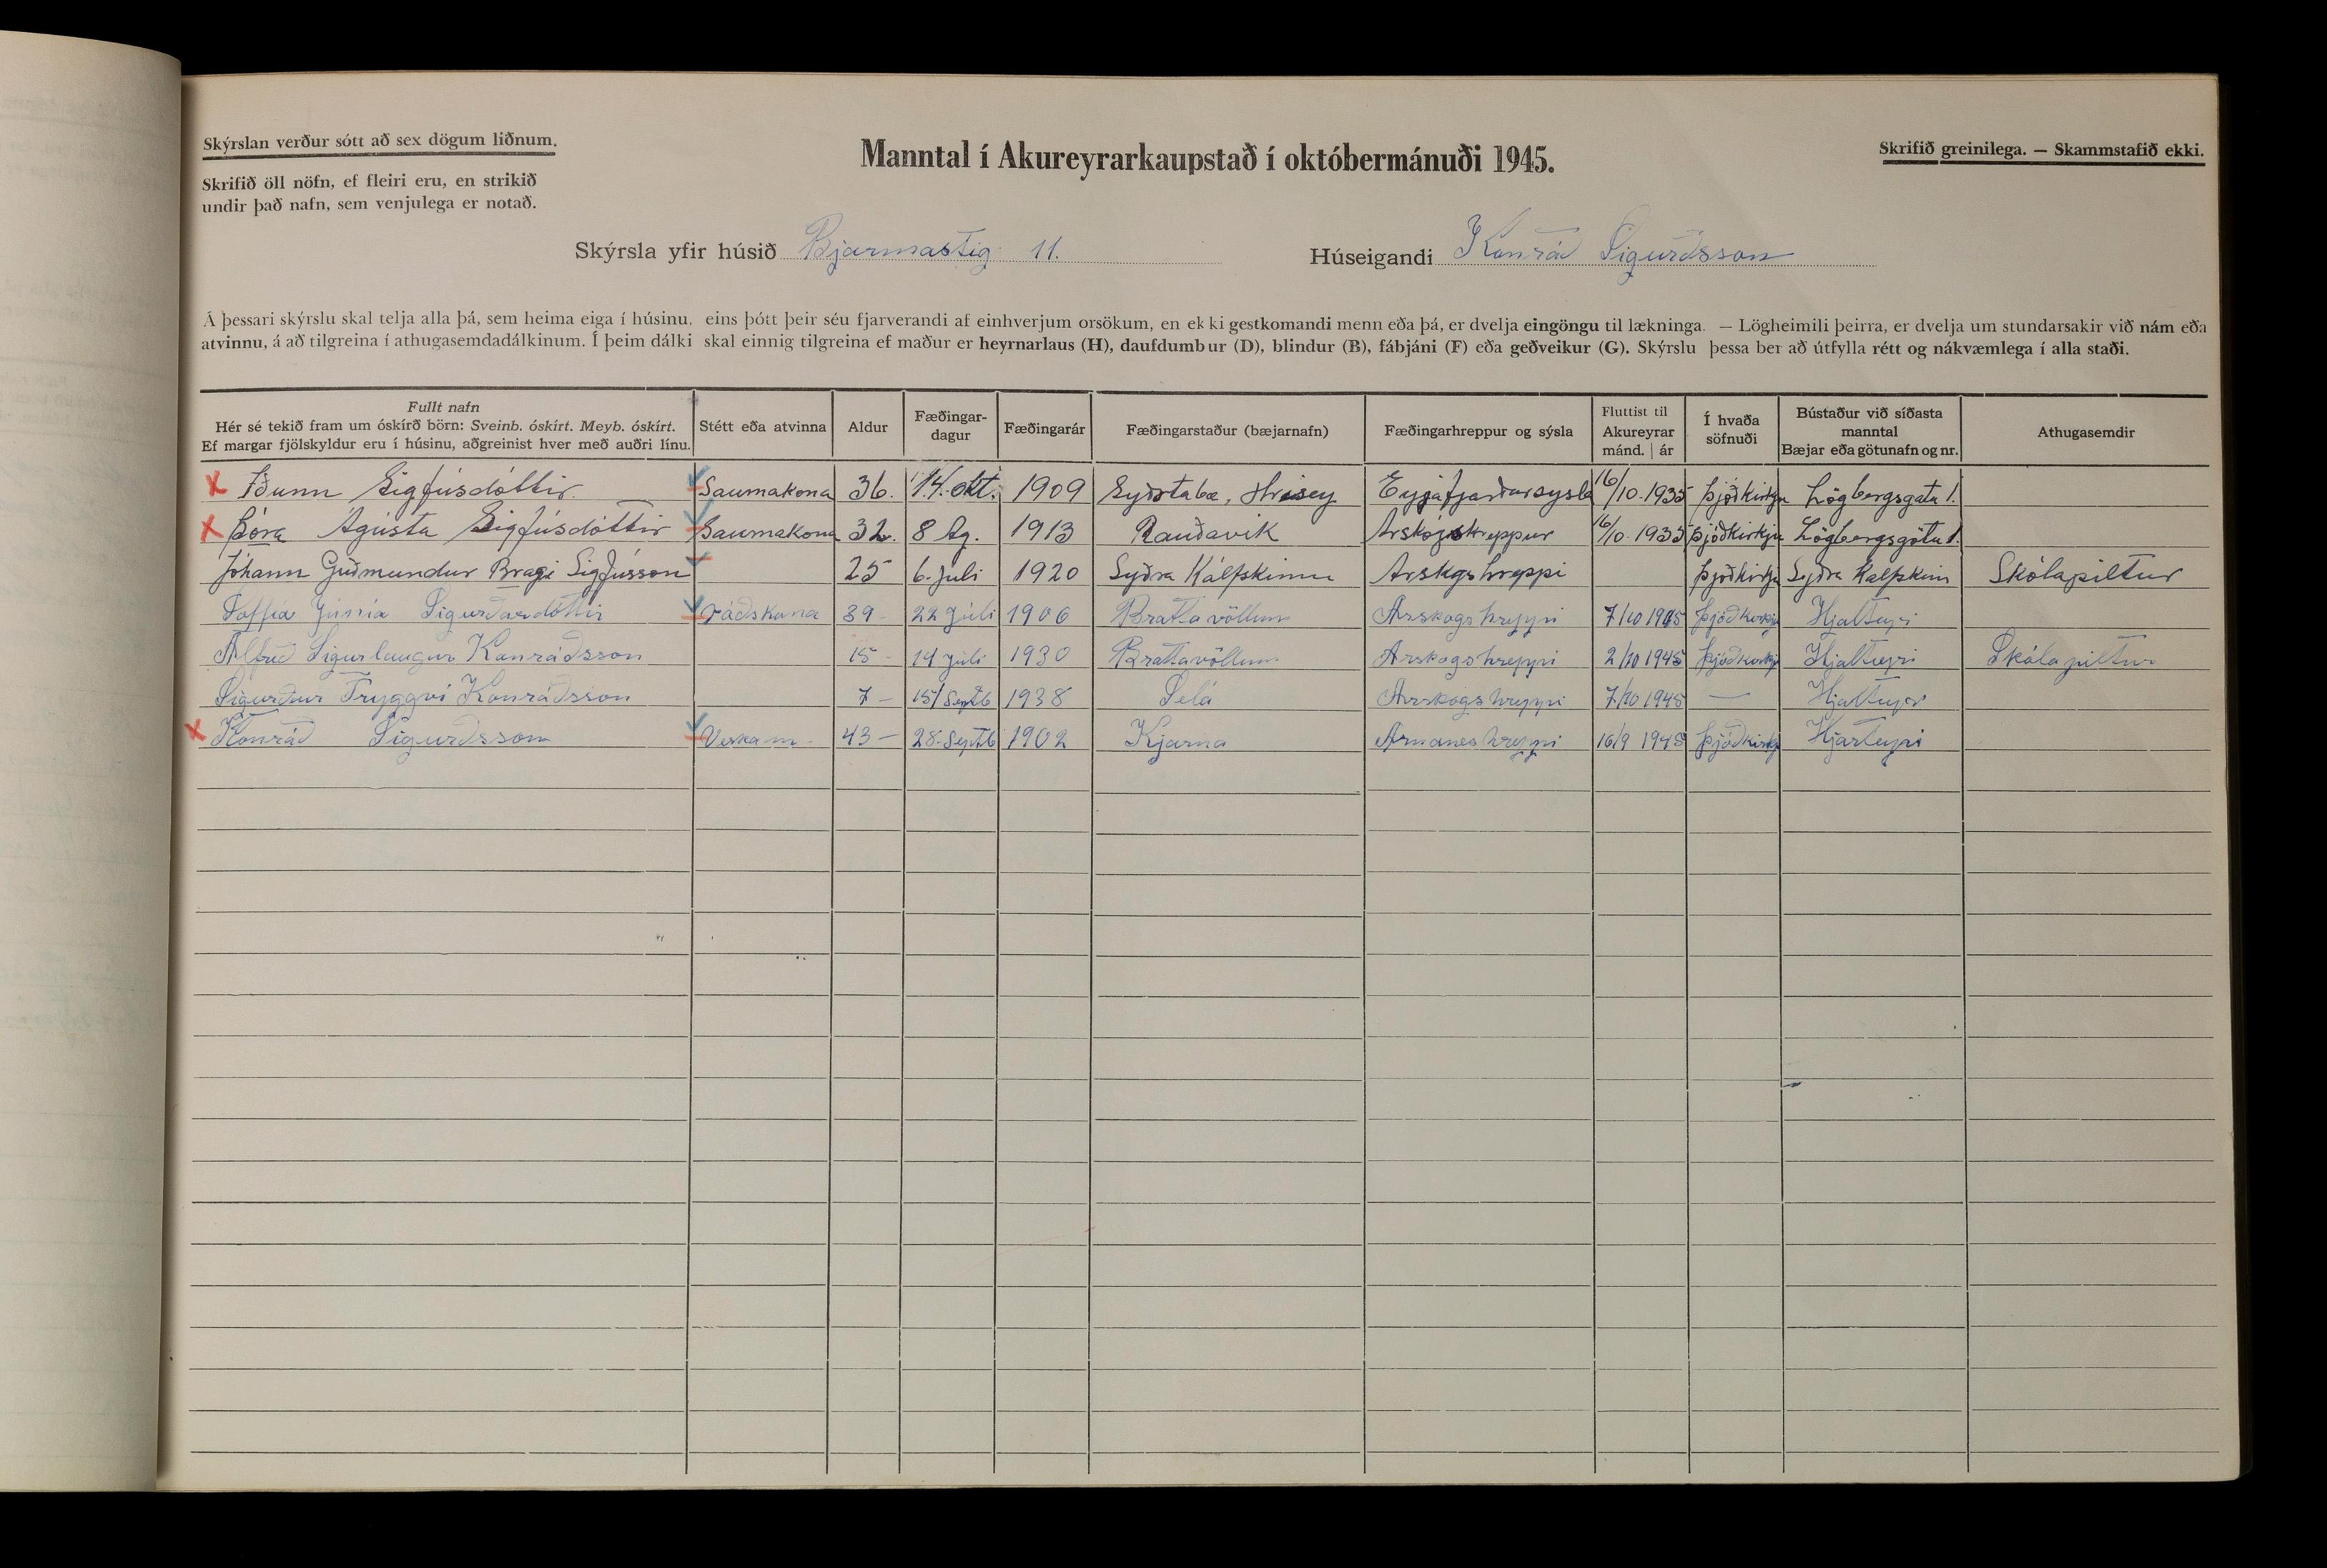 Skýrslan verður sótt að sex dögum liðnum.
Skrifið öll nöfn, ef fleiri eru, en strikið
undir það nafn, sem venjulega er notað.
Manntal í Akureyrarkaupstað í októbermánuði 1945.
Skrifið greinilega. — Skammstafið ekki.
Skýrsla yfir húsið Bjarmastig 11.
Húseigandi Konráð Sigurðsson
Á þessari skýrslu skal telja alla þá, sem heima eiga í húsinu, eins þótt þeir séu fjarverandi af einhverjum orsökum, en ekki gestkomandi menn eða þá, er dvelja eingöngu til lækninga. — Lögheimili þeirra, er dvelja um stundarsakir við nám eða
atvinnu, á að tilgreina í athugasemdadálkinum. Í þeim dálki skal einnig tilgreina ef maður er heyrnarlaus (H), daufdumbur (D), blindur (B), fábjáni (F) eða geðveikur (G). Skýrslu þessa ber að útfylla rétt og nákvæmlega í alla staði.
Fullt nafn
Hér sé tekið fram um óskírð börn: Sveinb. óskírt. Meyb. óskírt.
Ef margar fjölskyldur eru í húsinu, aðgreinist hver með auðri línu.
Stétt eða atvinna
Aldur
Fæðingar-
dagur
Fæðingarár
Fæðingarstaður (bæjarnafn)
Fæðingarhreppur og sýsla
Fluttist til
Akureyrar
mánd. | ár
Í hvaða
söfnuði
Bústaður við síðasta
manntal
Bæjar eða götunafn og nr.
Athugasemdir
Iðunn Sigfúsdóttir. Saumakona 36. 14. okt. 1909 Syðstabæ, Hrisey Eyjafjarðarsysla 16/10. 1935 Þjóðkirkju Lögbergsgata 1.
Þóra Ágústa Sigfúsdóttir Saumakona 32. 8 Ág. 1913 Rauðavik Arskógshreppur 16/10. 1935 Þjóðkirkju Lögbergsgötu 1.
Jóhann Guðmundur Bragi Sigfússon 25 6. Juli 1920 Syðra Kálfskinn Arskgshreppi Þjóðkirkju Syðra Kalfskinn Skólapiltur
Soffía Júnía Sigurðardóttir ráðskona 39- 22 júli 1906 Brattavöllum Arskogshreppi 7/10 1945 Þjóðkirkju Hjalteyri
Alfreð Sigurlaugur Konráðsson 15- 14 júli 1930 Brattavöllum Arskogshreppi 2/10 1945 Þjóðkirkju Hjalteyri Skólapiltur
Sigurður Tryggvi Konráðsson 7- 15/ Septb 1938 Selá Arskógshreppi 7/10 1945 — Hjalteyri
Konráð Sigurðsson Verkam- 43- 28. Septb 1902 Kjarna Arnaneshreppi 16/9 1945 Þjóðkirkj Hjarteyri